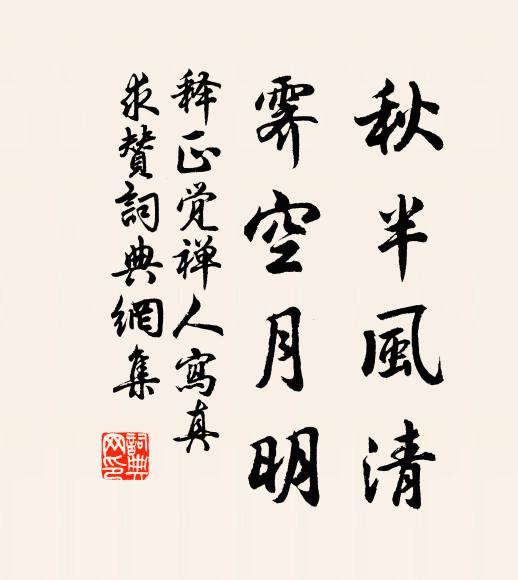 秋半風清
霽空月明
释正觉禅人寫真
求贊詞典網集
詞典
网印